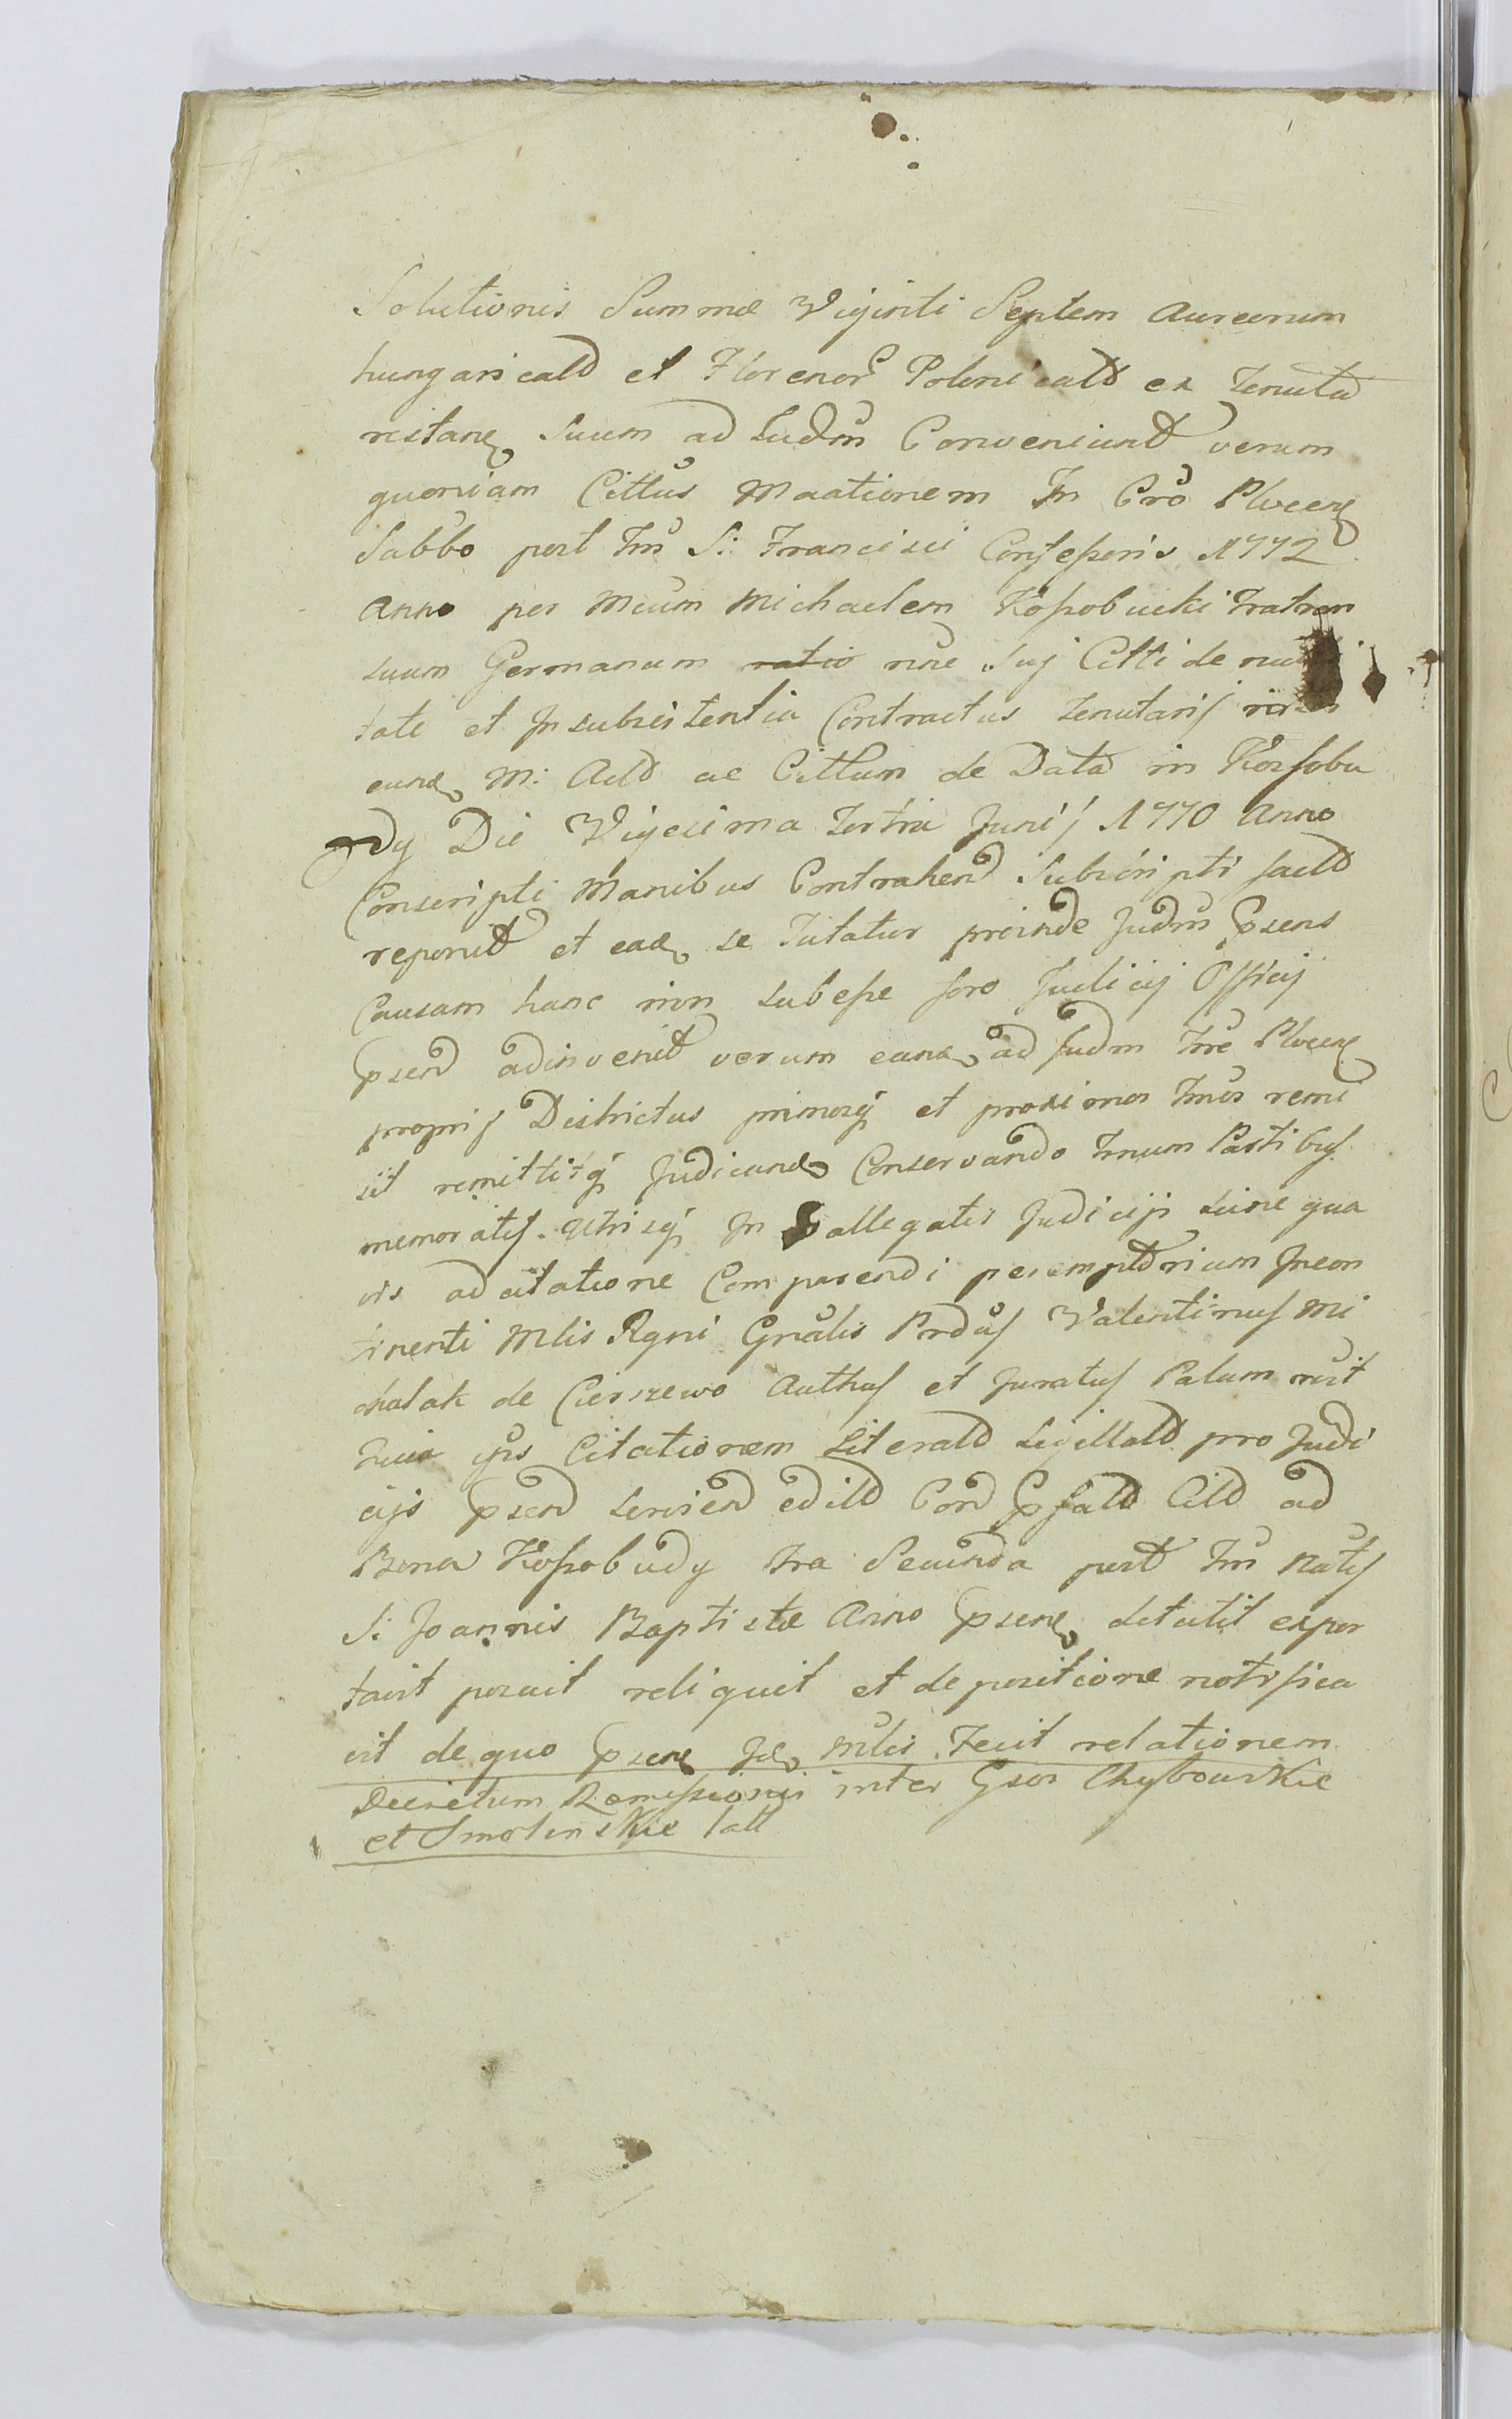 Solutionis Summæ Viginti Septem Aureorum
hungaricald et Florenor Polonicald ex Tenuta
restane suum ad Judm Conveniund verum
quoniam Cittus Maationem In Cro Plocen
Sabbo post fm S: Francisci Confessoris 1772
Anno per Mcum Michaelem Kossobucki Fratrem
suum Germanum ratio nõe Suj Citti de nu
tate et Insubsistentia Contractus Tenutarij
eund M: Actd ac Cittum de Data in Kossobu
dy Die Vigesima Tertia Junij 1770 Anno
Conscripti Manibus Contrahend Subscripti factd
reponit et ead se Tutatur proinde Judm Psens
Causam hanc non subesse foro Judicij Officij
Psend adinvenit verum eand ad Judm Tre Plocen
proprij Districtus primosq et proximos Tnos remi
sit remittitq Judicand Conservando Tnum Partibus
memoratis utrisq In allegatis Judicijs sine qua
vis adcitatione Comparendi peremptorium Incon
tinenti Mlis Regni Gnalis Prdus Valentinus Mi
chalak de Cierszewo Authus et Juratus Palam rnit
Quia ips Citationem Literald Sigillald pro Judi
cijs Psend serviend editd Cord Psatd Citd ad
Bona Kossobudy fra Secunda post fm Natis
S: Joannis Baptistæ Anno Psene detulit expor
tavit posuit reliquit et depositione notifica
vit de quo Psene Id Mlis fecit relationem
Decretum Remissionis inter Gsos Chybowskie
et Smolinskie latt